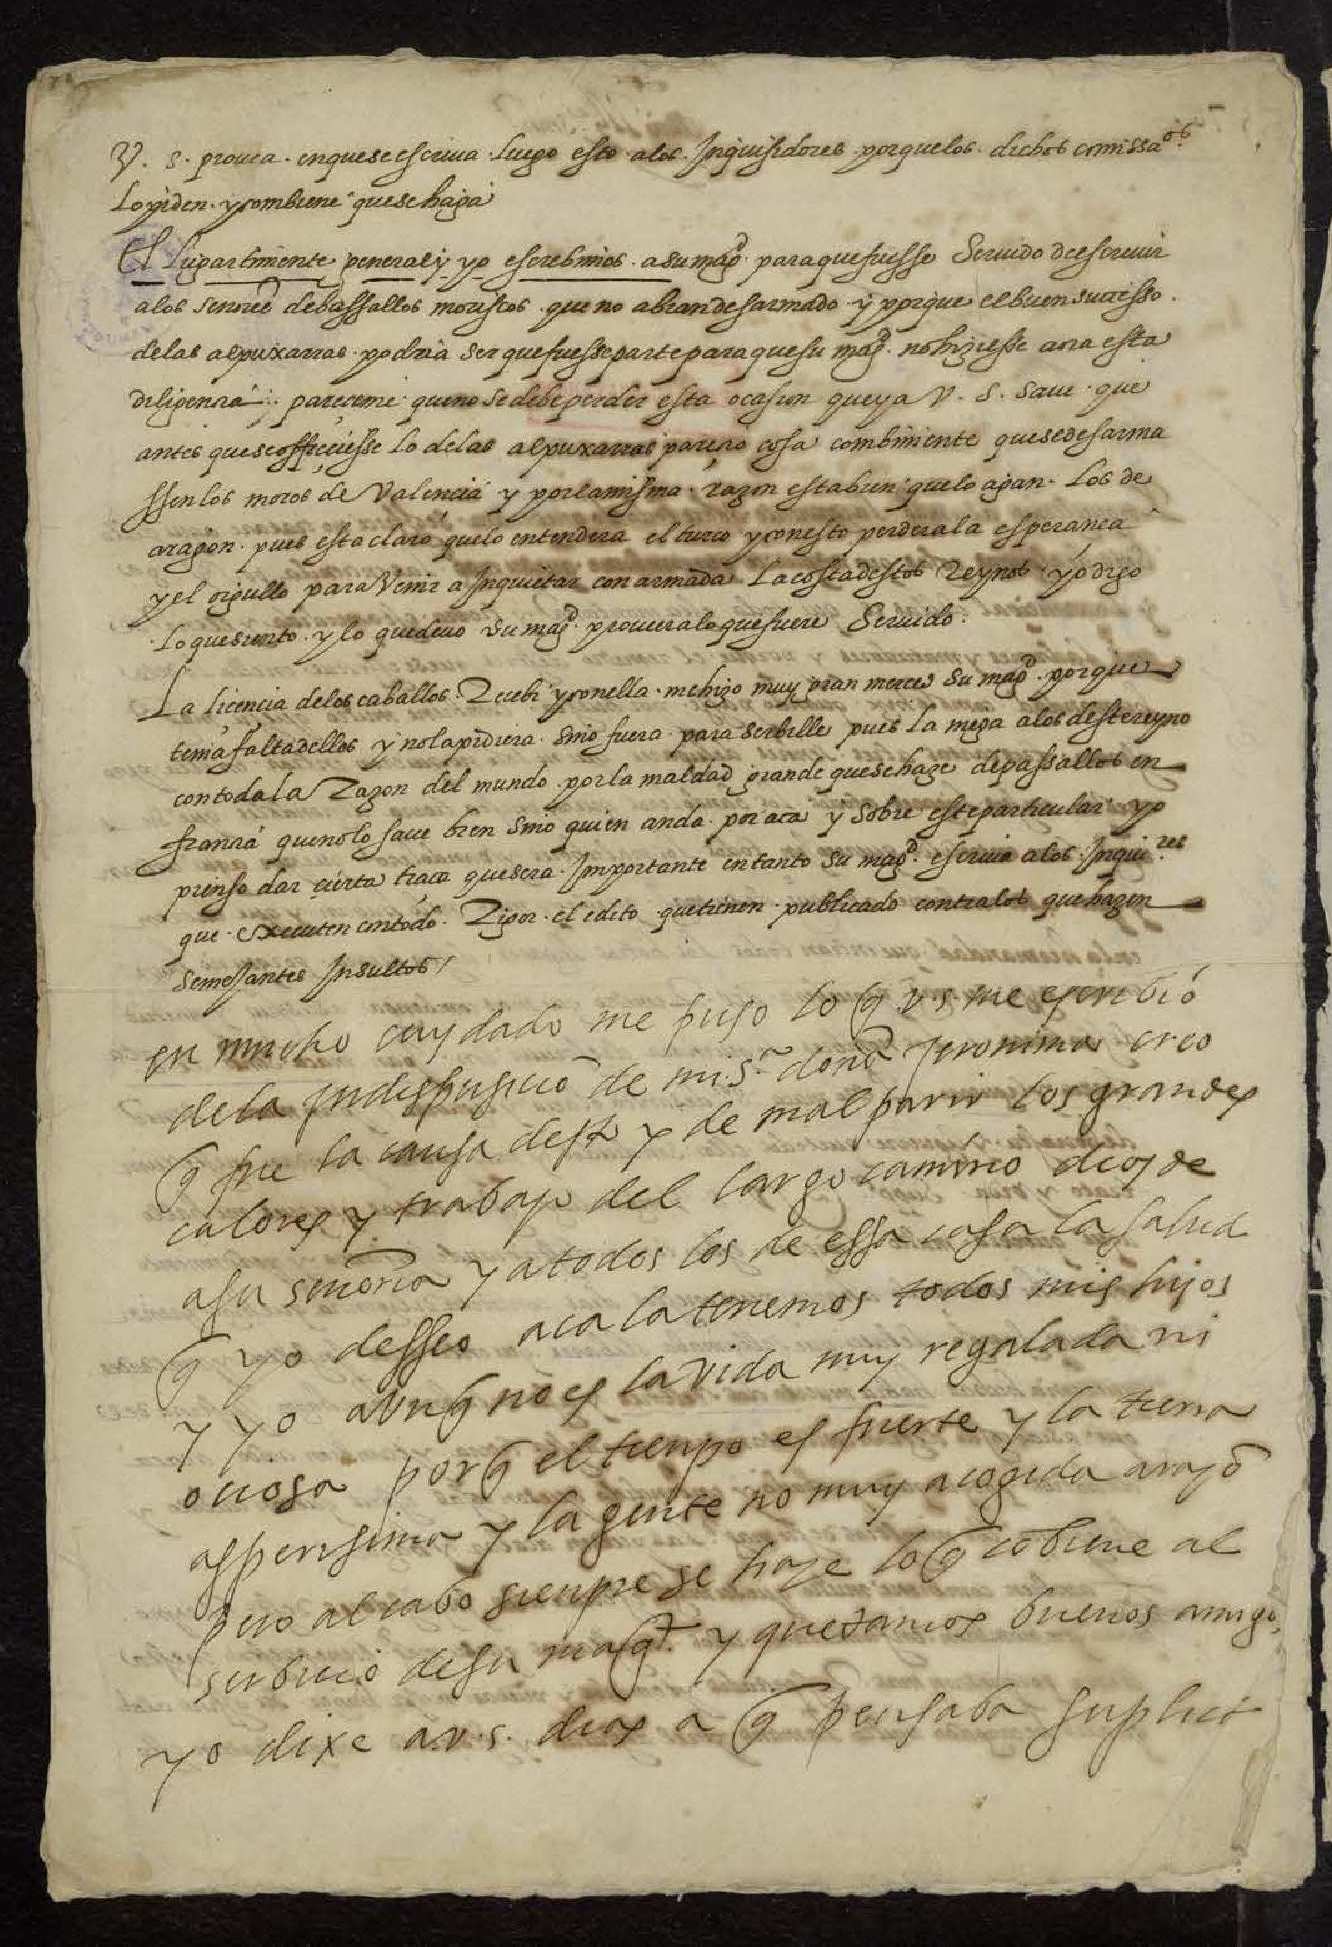 V. s. prouea. en que se escriua luego esto a los Inquisidores porque los dichos comissaos
lo piden. y combiene que se haga
El lugartiniente general y yo escrebimos a su magd. para que fuesse seruido de escreuir
a los señores de bassallos moriscos. que no abian desarmado y porque el buen sucesso.
de las alpuxarras podria ser que fuesse parte para que su magd. no hiziesse aora esta
diligencia. pareceme que no se debe perder esta ocasion que ya V. S. saue que
antes que se offreciesse lo de las alpuxarras parecio cosa combiniente que se desarma
ssen los moros de Valencia y por la misma razon esta bien que lo agan. los de
aragon. pues esta claro que lo entendera el turco y con esto perdera la esperanca
y el orgullo para Venir a Inquietar con armada la costa destos Reynos. yo digo
lo que siento. y lo que deuo su magd. proueera lo que fuere Seruido.
La licencia de los caballos. Recebi y con ella. me hizo muy gran merced su magd. porque
tenia falta dellos y no la pidiera. sino fuera para serbille pues la niega a los deste reyno
con toda la Razon del mundo. por la maldad grande que se haze de passallos en
francia que no lo saue bien sino quien anda. por aca y sobre este particular yo
pienso dar cierta traca que sera. Importante en tanto su magd. escriua a los. Inquires
que. executen con todo. Rigor. el edito que tienen. publicado contra los que hazen
semejantes Insultos/
en mucho cuydado me puso lo q v. s. me escribió
de la Indispusicio de mi sra doña Jeronima creo
q fue la causa desto y de mal parir los grandes
calores y trabajo del largo camino dios de
a su señoria y a todos los de essa casa la salud
q yo desseo aca la tenemos todos mis hijos
y yo avnq no es la vida muy regalada ni
ociosa porq el tienpo es fuerte y la tierra
asperisima y la gente no muy acogida a razo
pero al cabo sienpre se haze lo q cobiene al
serbicio de su magt. y quedamos buenos amigos
yo dixe a v. s. dias a q pensaba suplicar